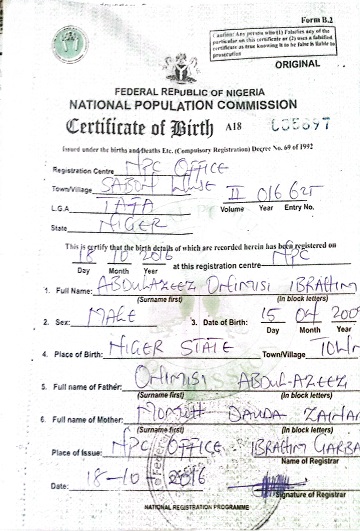 Form B.2
Caution: Any person who (1) Falsifies any of the
particular on this certificate or (2) uses a falsified
certificate as true knowing it to be false is liable to
prosecution
ORIGINAL
FEDERAL REPUBLIC OF NIGERIA
NATIONAL POPULATION COMMISSION
Certificate of Birth A18
Issued under the births and Deaths Etc. (Compulsory Registration) Decree No. 69 of 1992
Registration Centre NPC OFFICE
Town/Village SABON II 016 625
L.G.A Volume Year Entry No.
State NIGER
This is certify that the birth details of which are recorded herein has been registered on
18 10 2016 at this registration centre NPC
Day Month Year
1. Full Name: ABDULAZEEZ IBRAHIM
(Surname first) (In block letters)
2. Sex: MALE 3. Date of Birth: 15 04
Day Month Year
4. Place of Birth: NIGER STATE Town/Village
5. Full name of Father: ABDUL-AZEEZ
(Surname first) (In block letters)
6. Full name of Mother: DAUDA
(Surname first) (In block letters)
Place of Issue: NPC OFFICE IBRAHIM GARBA
Name of Registrar
Date: 18-10-2016
Signature of Registrar
NATIONAL REGISTRATION PROGRAMME